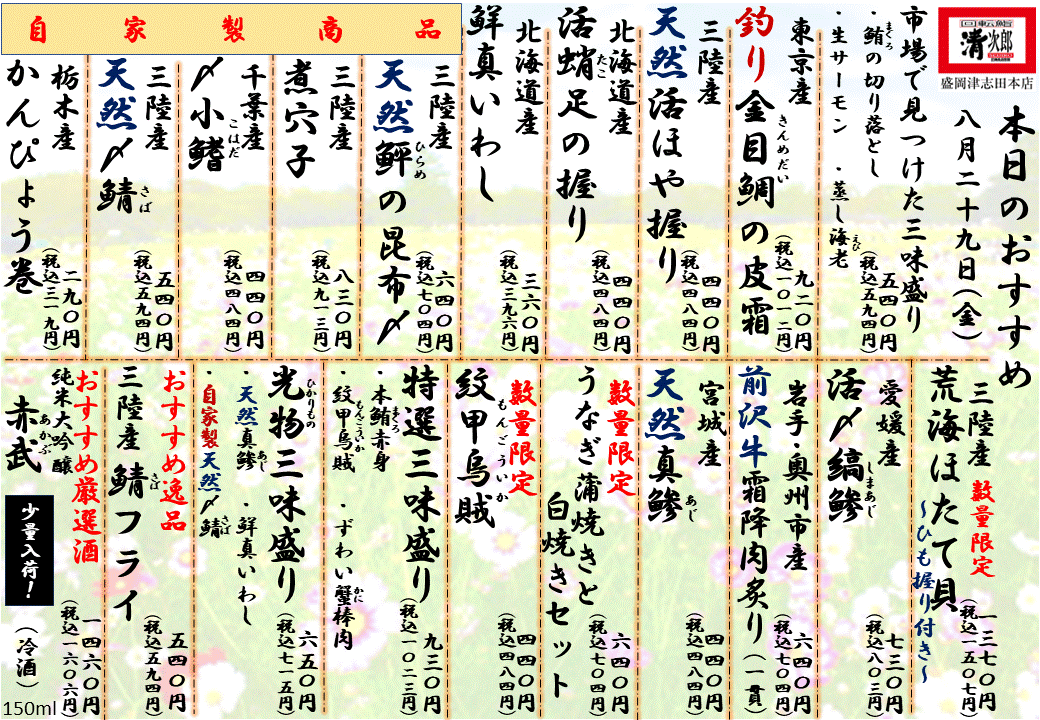 回転鮨
清次郎
盛岡津志田本店
本日のおすすめ
八月二十九日(金)
市場で見つけた三味盛り
・鮪の切り落とし
まぐろ
・生サーモン ・蒸し海老
えび
五四〇円
(税込五九四円)
東京産
釣り金目鯛の皮霜
きんめだい
九二〇円
(税込一〇一二円)
三陸産
天然活ほや握り
四四〇円
(税込四八四円)
北海道産
活蛸足の握り
たこ
四四〇円
(税込四八四円)
北海道産
鮮真いわし
三六〇円
(税込三九六円)
自家製商品
三陸産
天然鮃の昆布〆
ひらめ
六四〇円
(税込七〇四円)
三陸産
煮穴子
八三〇円
(税込九一三円)
千葉産
〆小鰭
こはだ
四四〇円
(税込四八四円)
三陸産
天然〆鯖
さば
五四〇円
(税込五九四円)
栃木産
かんぴょう巻
二九〇円
(税込三一九円)
三陸産
数量限定
荒海ほたて貝
〜ひも握り付き〜
一三七〇円
(税込一五〇七円)
愛媛産
活〆縞鯵
しまあじ
七三〇円
(税込八〇三円)
岩手・奥州市産
前沢牛霜降肉炙り(一貫)
六四〇円
(税込七〇四円)
宮城産
天然真鯵
あじ
四四〇円
(税込四八四円)
数量限定
うなぎ蒲焼きと
白焼きセット
六四〇円
(税込七〇四円)
数量限定
紋甲烏賊
もんごういか
四四〇円
(税込四八四円)
特選三味盛り
・本鮪赤身
まぐろ
・紋甲烏賊 ・ずわい蟹棒肉
もんごういか かに
九三〇円
(税込一〇二三円)
光物三味盛り
ひかりもの
・天然真鯵 ・鮮真いわし
あじ
・自家製天然〆鯖
さば
六五〇円
(税込七一五円)
おすすめ逸品
三陸産 鯖フライ
さば
五四〇円
(税込五九四円)
おすすめ厳選酒
純米大吟醸
赤武
あかぶ
少量入荷!
一四六〇円
(税込一六〇六円)
(冷酒)
150ml